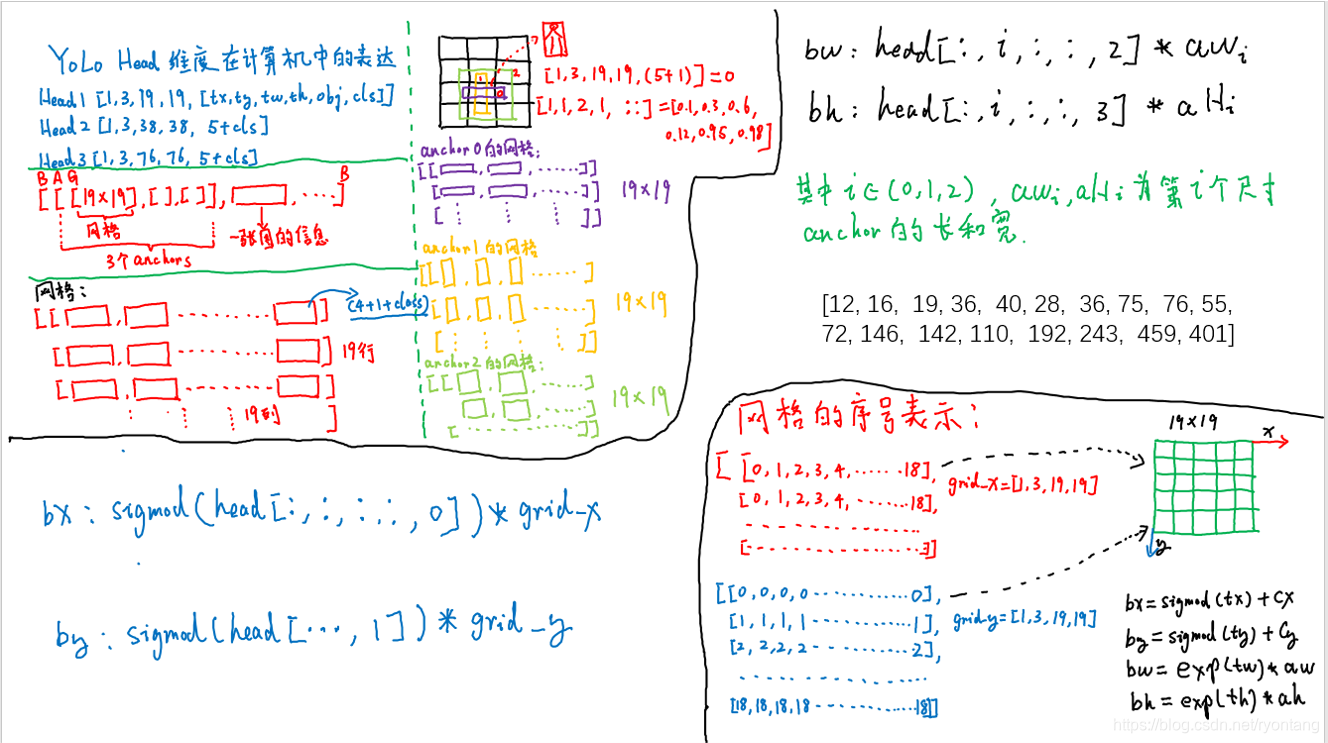 YoLo Head 维度在计算机中的表达
Head1 [1,3,19,19, [tx,ty,tw,th,obj,cls]]
Head2 [1,3,38,38, 5+cls]
Head3 [1,3,76,76, 5+cls]
B A G
B
[[[19×19],[],[]], ,.....]
网格
一张图的信息
3个anchors
网格:
(4+1+class)
19行
19列
1
2
0
[1,3,19,19,(5+1)]=0
[1,1,2,1, ::]=[0.1,0.3,0.6,
0.12,0.95,0.98]
anchor0的网格:
19×19
anchor1的网格
19×19
anchor2的网格:
19×19
bw: head[:,i,:,:,2]*awi
bh: head[:,i,:,:,3]*aHi
其中i∈(0,1,2), awi,aHi为第i个尺寸
anchor的长和宽.
[12, 16, 19, 36, 40, 28, 36, 75, 76, 55,
72, 146, 142, 110, 192, 243, 459, 401]
bx: sigmod(head[:,:,:,:,0])*grid_x
by: sigmod(head[...,1])*grid_y
网格的序号表示:
[[0,1,2,3,4,......18],
[0,1,2,3,4,......18],
grid_x=[1,3,19,19]
[[0,0,0,0............0],
[1,1,1,1............1],
grid_y=[1,3,19,19]
[2,2,2,2............2],
[18,18,18,18..........18]]
19×19
x
y
bx=sigmod(tx)+cx
by=sigmod(ty)+Cy
bw=exp(tw)*aw
bh=exp(th)*ah
https://blog.csdn.net/ryontang